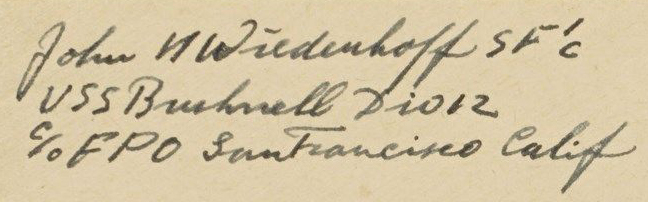 John H Wiedenhoff SF 1/c
USS Bushnell Div 12
c/o FPO San Francisco Calif